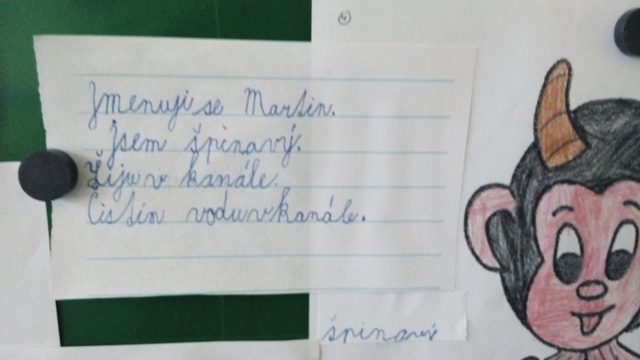 4
Jmenuji se Martin.
Jsem špinavý.
Žiju v kanále.
Čistím vodu v kanále.
špinavý